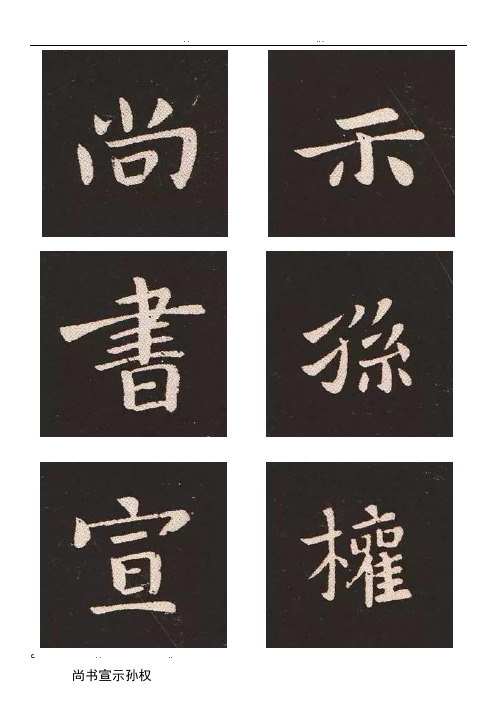 尚
書
宣
示
孫
權
尚书宣示孙权